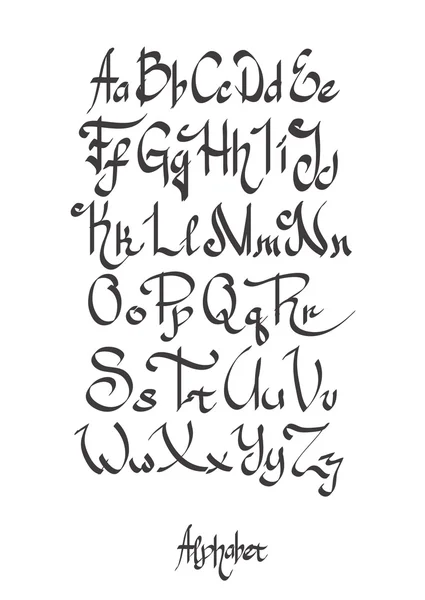 AaBbCcDdEe
FfGgHhIiJj
KkLlMmNn
OoPpQqRr
SsTtUuVv
WwXxYyZz
Alphabet